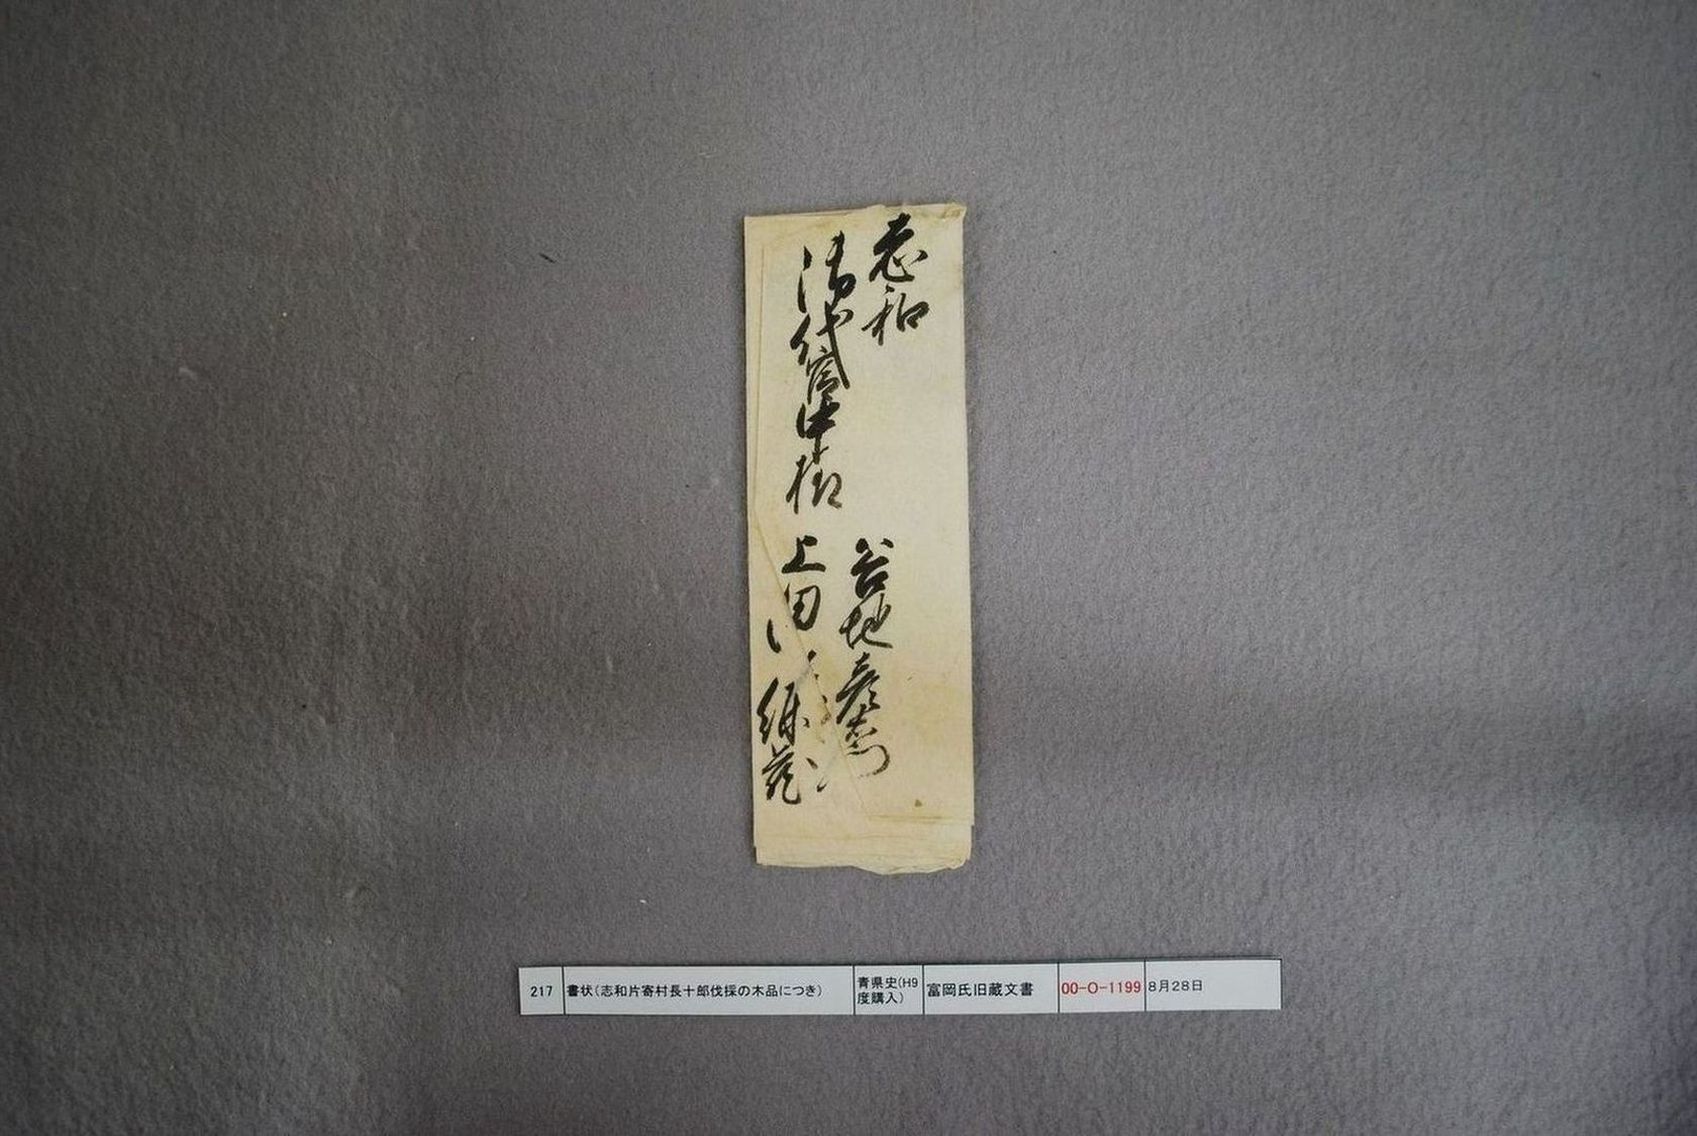 志和
御代官中様
谷地
上田
217
書状(志和片寄村長十郎伐採の木品につき)
青県史(H9
度購入)
富岡氏旧蔵文書
00-O-1199
8月28日